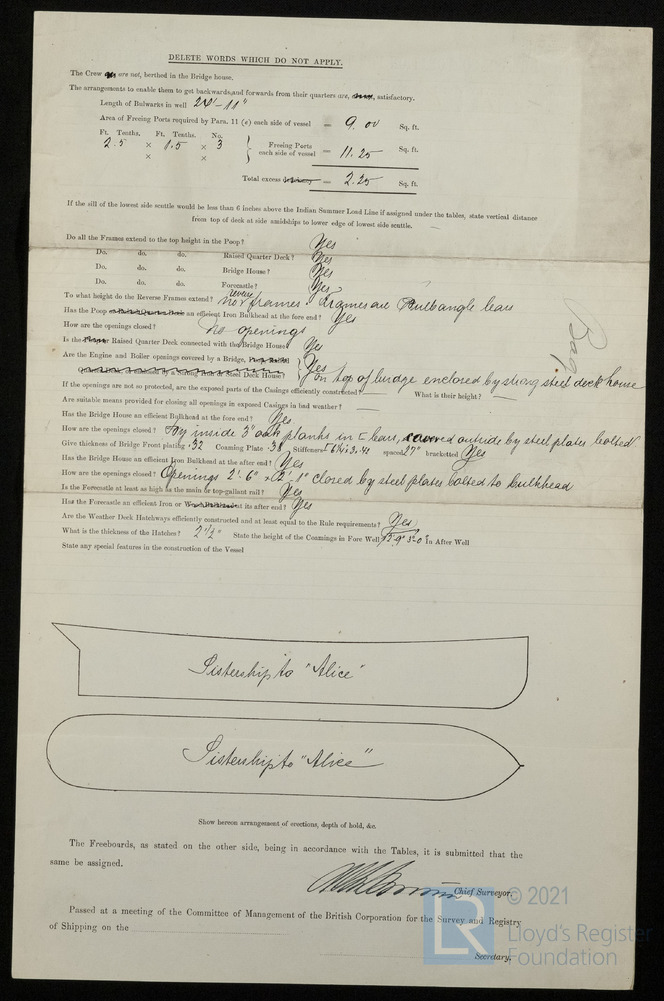 DELETE WORDS WHICH DO NOT APPLY.
The Crew are are not, berthed in the Bridge house.
The arrangements to enable them to get backwards and forwards from their quarters are, satisfactory.
Length of Bulwarks in well 24'-11"
Area of Freeing Ports required by Para. 11 (e) each side of vessel = 9.00 Sq. ft.
Ft. Tenths. Ft. Tenths. No.
2.5 × 1.5 × 3 } Freeing Ports each side of vessel = 11.25 Sq. ft.
× ×
Total excess = 2.25 Sq. ft.
If the sill of the lowest side scuttle would be less than 6 inches above the Indian Summer Load Line if assigned under the tables, state vertical distance
from top of deck at side amidships to lower edge of lowest side scuttle. —
Do all the Frames extend to the top height in the Poop? Yes
Do. do. do. Raised Quarter Deck? Yes
Do. do. do. Bridge House? Yes
Do. do. do. Forecastle? Yes
To what height do the Reverse Frames extend? No revers frames: Frames are Bulb angle bars
Has the Poop an efficient Iron Bulkhead at the fore end? Yes
How are the openings closed? No openings
Is the Raised Quarter Deck connected with the Bridge House? Yes
Are the Engine and Boiler openings covered by a Bridge, Yes
Steel Deck House? on top of bridge enclosed by strong steel deck house
If the openings are not so protected, are the exposed parts of the Casings efficiently constructed? — What is their height? —
Are suitable means provided for closing all openings in exposed Casings in bad weather? —
Has the Bridge House an efficient Bulkhead at the fore end? Yes
How are the openings closed? inside 3" oak planks in [ bars, covered outside by steel plates bolted
Give thickness of Bridge Front plating .32 Coaming Plate .38 Stiffeners spaced 27" bracketted Yes
Has the Bridge House an efficient Iron Bulkhead at the after end? Yes
How are the openings closed? Openings 2'-6" × 2'-1" closed by steel plates bolted to bulkhead
Is the Forecastle at least as high as the main or top-gallant rail? Yes
Has the Forecastle an efficient Iron or at its after end? Yes
Are the Weather Deck Hatchways efficiently constructed and at least equal to the Rule requirements? Yes
What is the thickness of the Hatches? 2½" State the height of the Coamings in Fore Well In After Well
State any special features in the construction of the Vessel
Sistership to "Alice"
Sistership to "Alice"
Show hereon arrangement of erections, depth of hold, &c.
The Freeboards, as stated on the other side, being in accordance with the Tables, it is submitted that the
same be assigned.
Chief Surveyor.
Passed at a meeting of the Committee of Management of the British Corporation for the Survey and Registry
of Shipping on the
Secretary.
© 2021
LR Lloyd's Register
Foundation